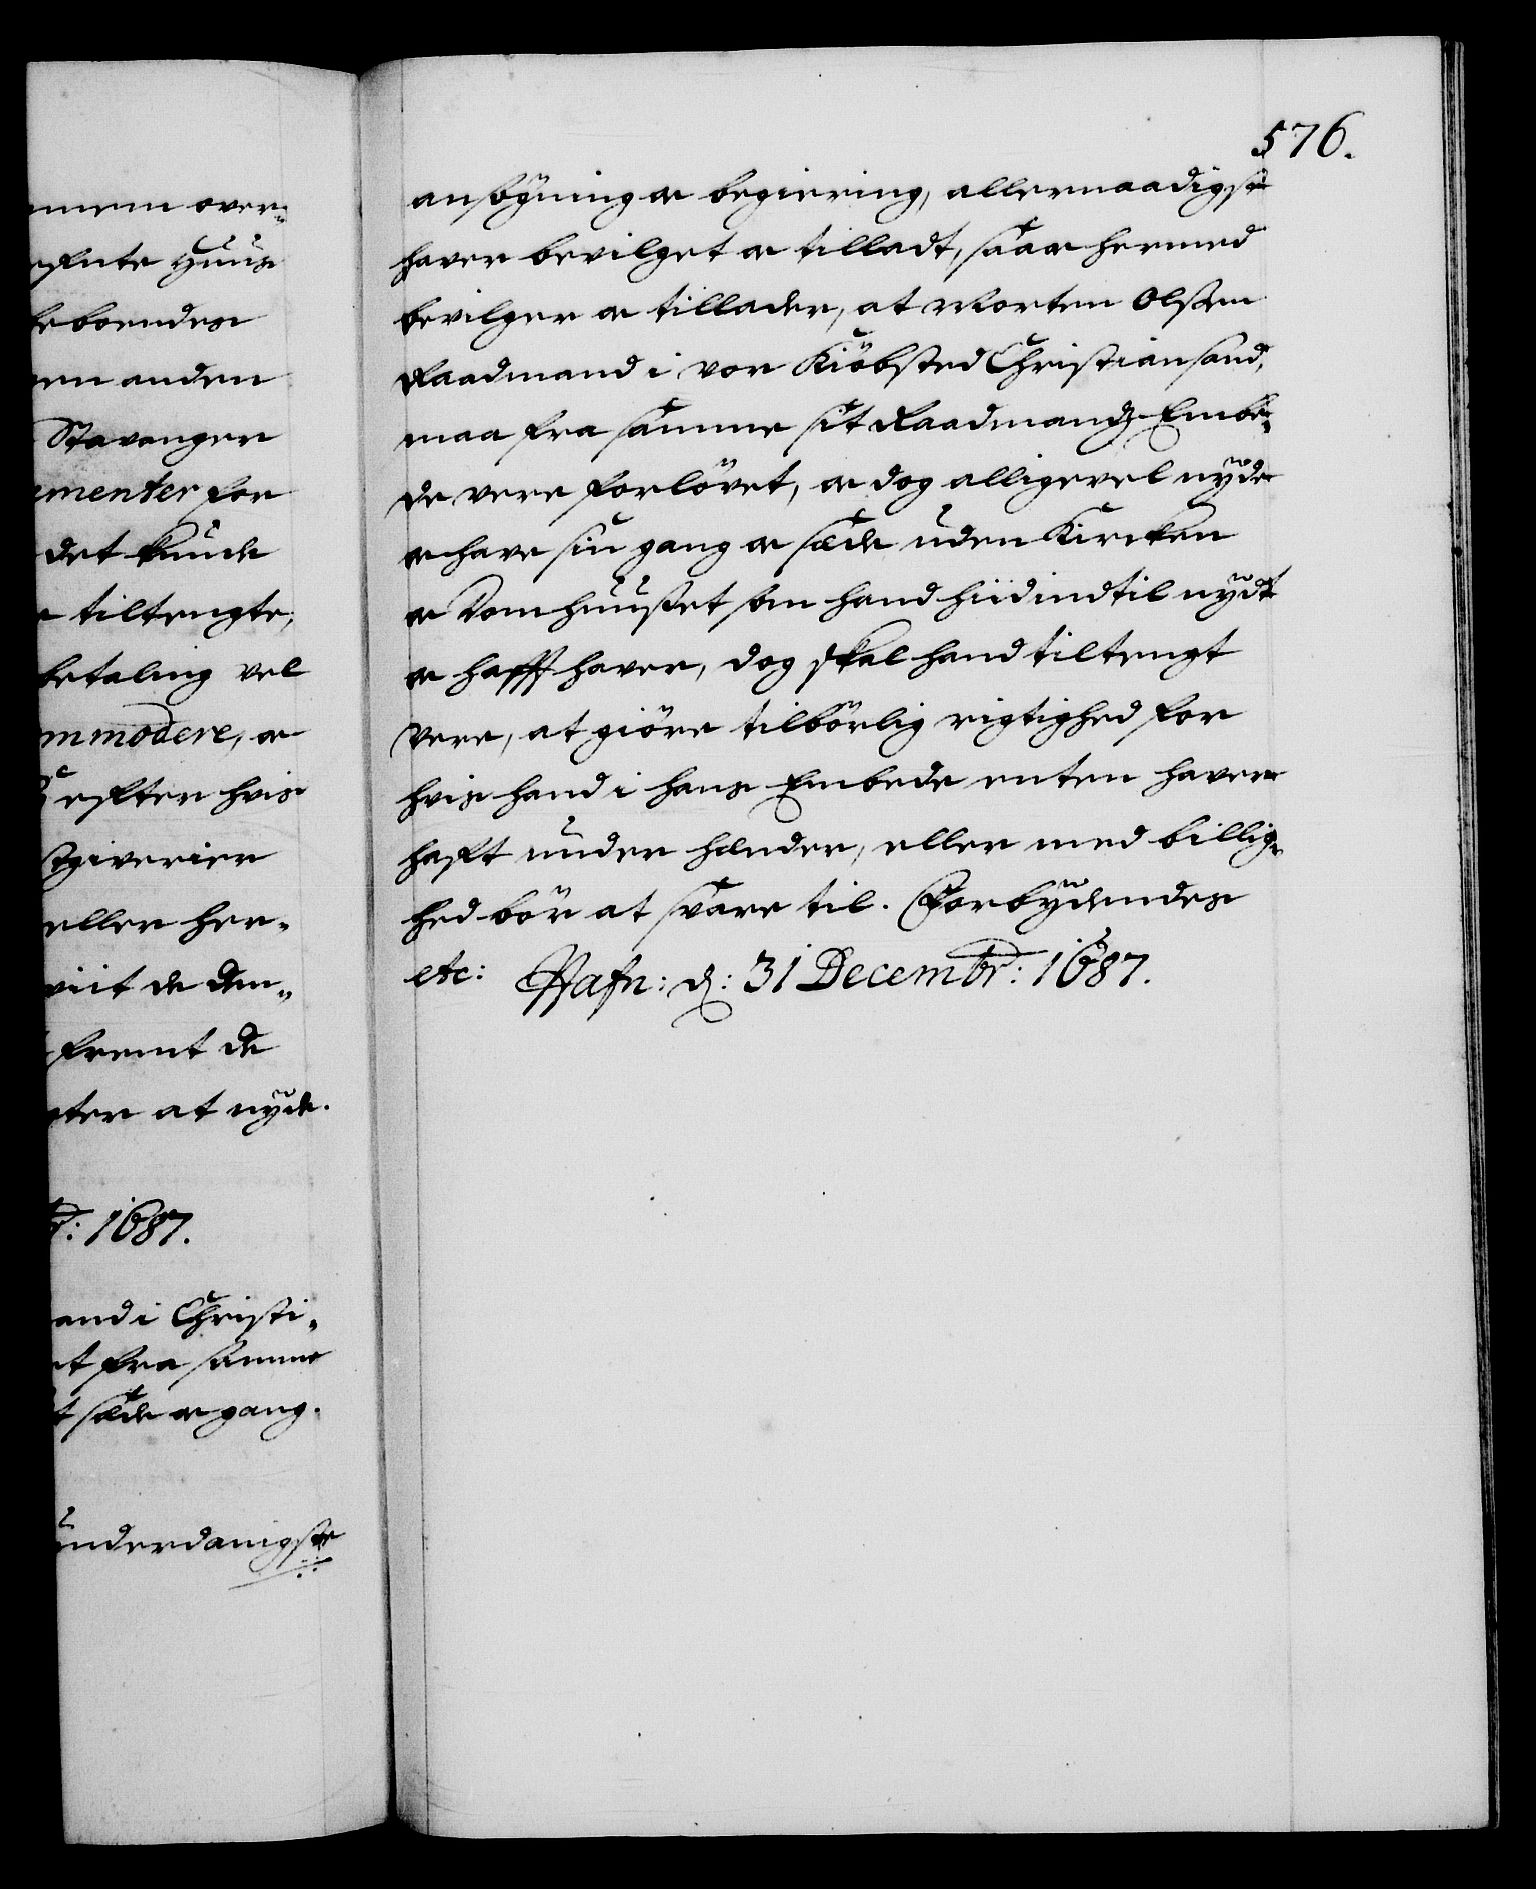 576.
ansögning og begiering, allernaadigst
haver bevilget og tilladt, saa og hermed
bevilger og tillader, at Morten Olsen
Raadmand i vor Kiöbsted Christiansand,
maa fra samme sit Raadmandz Embe„
de vere forlövet, og dog alligevel nyde
og have sin gang og sæde uden Kircken
og Domhuuset som hand hiidindtil nydt
og hafft haver, dog skal hand tiltengt
vere, at giöre tilbörlig rigtighed for
hvis hand i hans Embede enten haver
hafft under hænder, eller med billig„
hed bör at svare til. Forbydendes
etc: Hafn: d: 31 Decembr: 1687.
over„
Huus
boendes
anden
Stavanger
menter for
det kunde
tiltengte,
betaling vel
mmodere, og
efter hvis
giverier
eller her„
viit de den„
fremt de
at nyde.
1687.
and i Christi„
fra samme
sæde og gang.
underdanigste